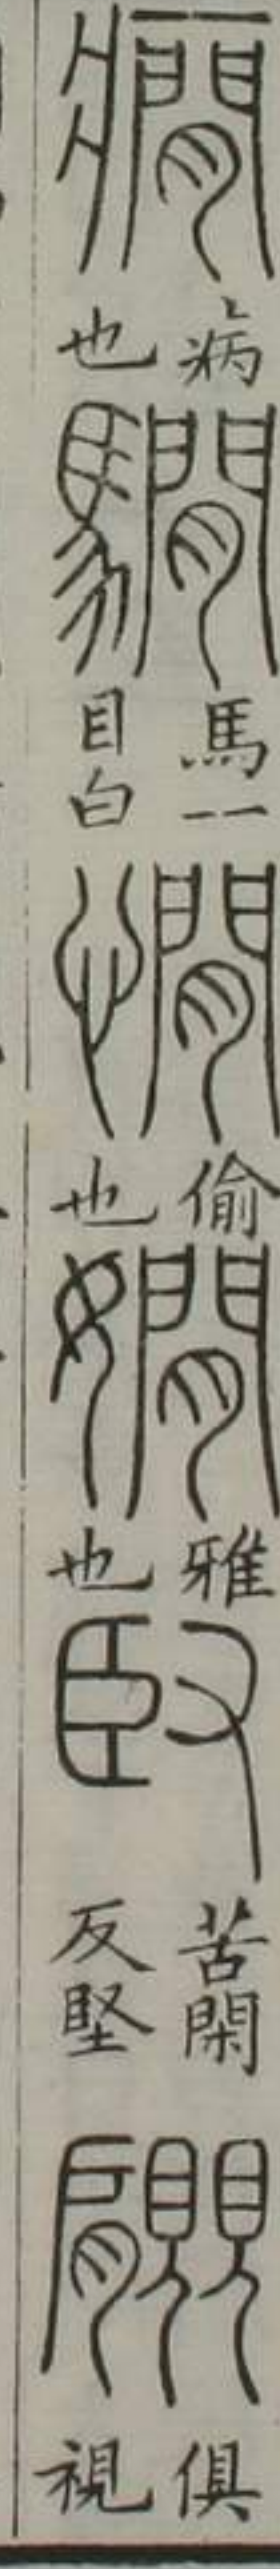 癎病也𩦂馬一目白憪偷也嫺雅也臤苦閑反堅俱視